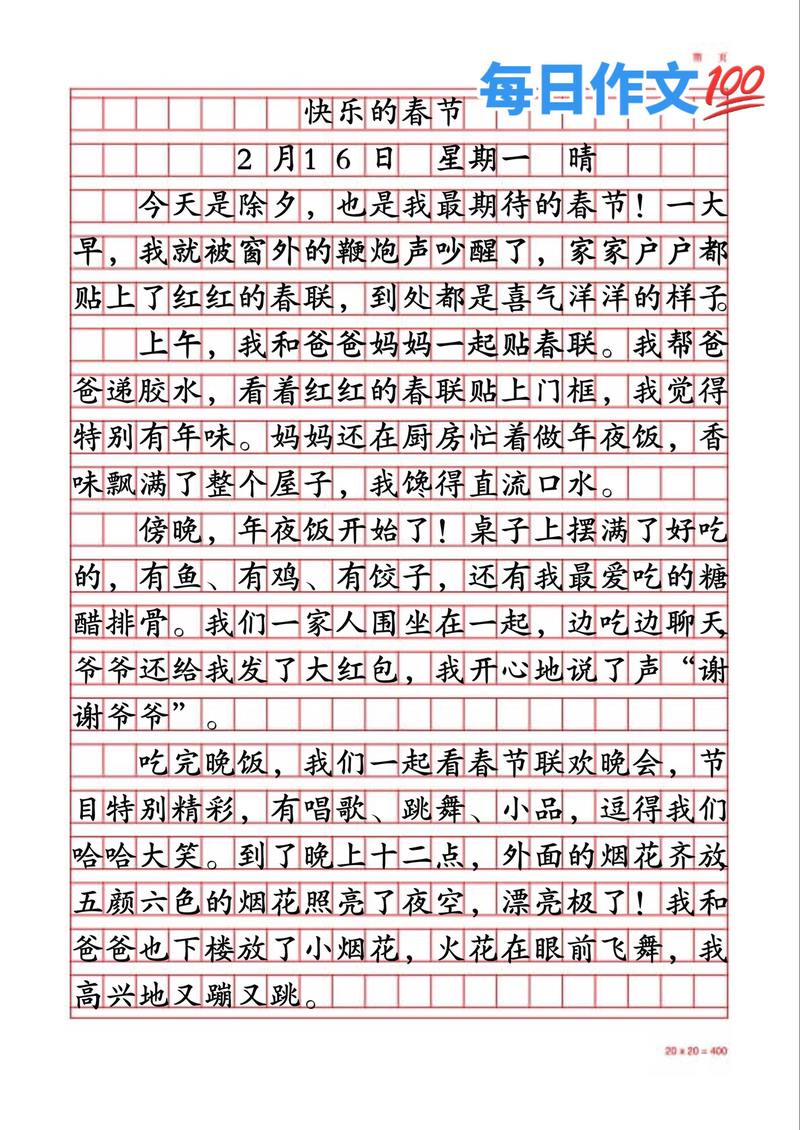 第 页
每日作文💯
快乐的春节
2月16日 星期一 晴
今天是除夕，也是我最期待的春节！一大
早，我就被窗外的鞭炮声吵醒了，家家户户都
贴上了红红的春联，到处都是喜气洋洋的样子。
上午，我和爸爸妈妈一起贴春联。我帮爸
爸递胶水，看着红红的春联贴上门框，我觉得
特别有年味。妈妈还在厨房忙着做年夜饭，香
味飘满了整个屋子，我馋得直流口水。
傍晚，年夜饭开始了！桌子上摆满了好吃
的，有鱼、有鸡、有饺子，还有我最爱吃的糖
醋排骨。我们一家人围坐在一起，边吃边聊天，
爷爷还给我发了大红包，我开心地说了声“谢
谢爷爷”。
吃完晚饭，我们一起看春节联欢晚会，节
目特别精彩，有唱歌、跳舞、小品，逗得我们
哈哈大笑。到了晚上十二点，外面的烟花齐放，
五颜六色的烟花照亮了夜空，漂亮极了！我和
爸爸也下楼放了小烟花，火花在眼前飞舞，我
高兴地又蹦又跳。
20 x 20 = 400